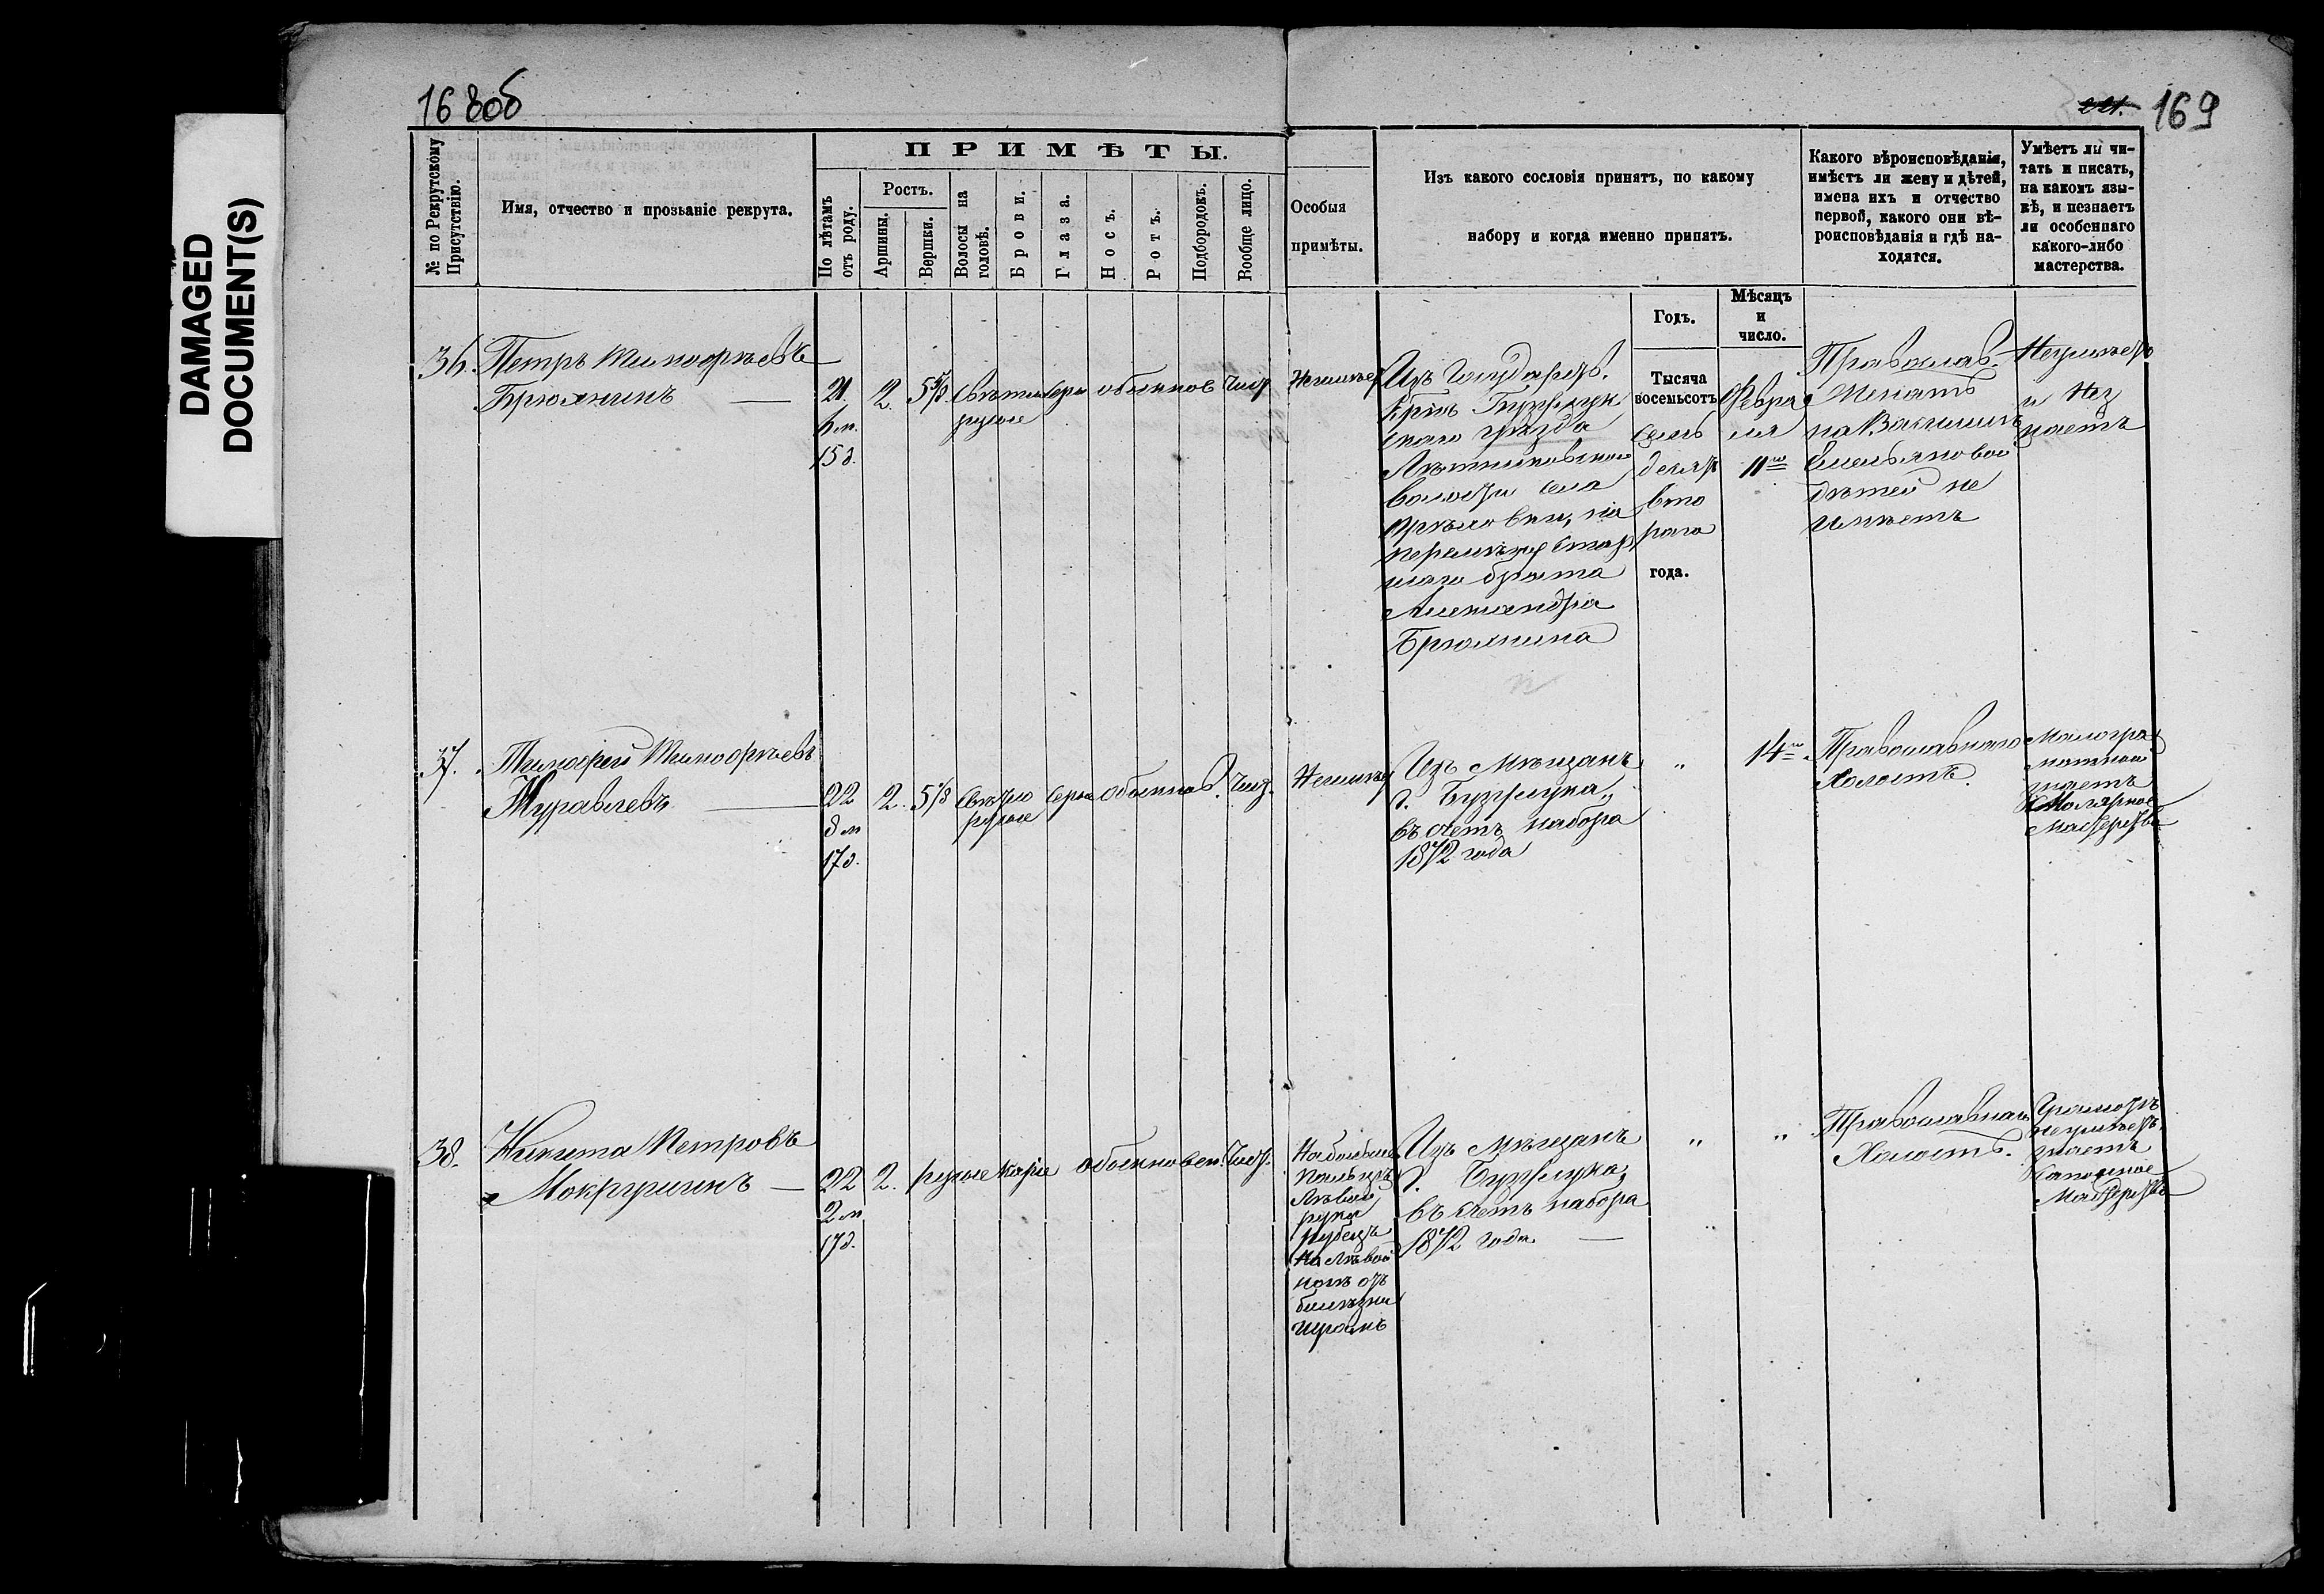 DAMAGED
DOCUMENT(S)
168об
221. 169
№ по Рекрутскому
Присутствію.
Имя, отчество и прозьаніе рекрута.
ПРИМѢТЫ.
По лѣтамъ
отъ роду.
Ростъ.
Аршины.
Вершки.
Волосы на
головѣ.
Брови.
Глаза.
Носъ.
Ротъ.
Подбородокъ.
Вообще лицо.
Особыя
примѣты.
Изъ какого сословія принятъ, по какому
набору и когда именно принятъ.
Какого вѣроисповѣданія,
имѣетъ ли жену и дѣтей,
имена ихъ и отчество
первой, какого они вѣ-
роисповѣданія и гдѣ на-
ходятся.
Умѣетъ ли чи-
тать и писать,
на какомъ язы-
кѣ, и незнаетъ
ли особеннаго
какого-либо
мастерства.
Годъ.
Мѣсяцъ
и
число.
36.
Петръ Тимофѣевъ
Брюхнинъ
21.
6 м.
15 д.
2.
5 5/8
Свѣтло
русые
серы
обыкнов
чист
Неимѣет
Изъ Государств.
Крѣс Бузулук
скаго уѣзда
волости села
на
перемѣну стар
шаго брата
Александра
Тысяча
восемьсотъ
семь
десят
вто
раго
года.
Февра
ля
11го
Православ.
Женатъ
на
Емельяновой
дѣтей не
имѣетъ
Неумѣетъ
и Нез
наетъ
37.
Тимофей Тимофѣевъ
Журавлевъ
22
8 м
17 д.
2.
5 1/8
Свѣтло
русые
серы
обыкнов.
чист.
Неимѣет
Изъ Мѣщанъ
г. Бузулука,
въ счетъ набора
1872 года
"
14го
Православнаго
Холостъ.
Малогра
мотной
знаетъ
Малярное
Мастерство
38.
Никита Петровъ
Мокрушинъ
22
2 м
17 д.
2.
русые
карие
обыкновен.
чист.
На большомъ
пальцѣ
лѣвой
руки
рубецъ
На лѣвой
ногѣ отъ
болѣзни
шрамъ
Изъ Мѣщанъ
г. Бузулука,
въ счетъ набора
1872 года.
"
"
Православнаго
Холостъ.
Грамотѣ
неумѣетъ.
знаетъ
Сапожное
Мастерство